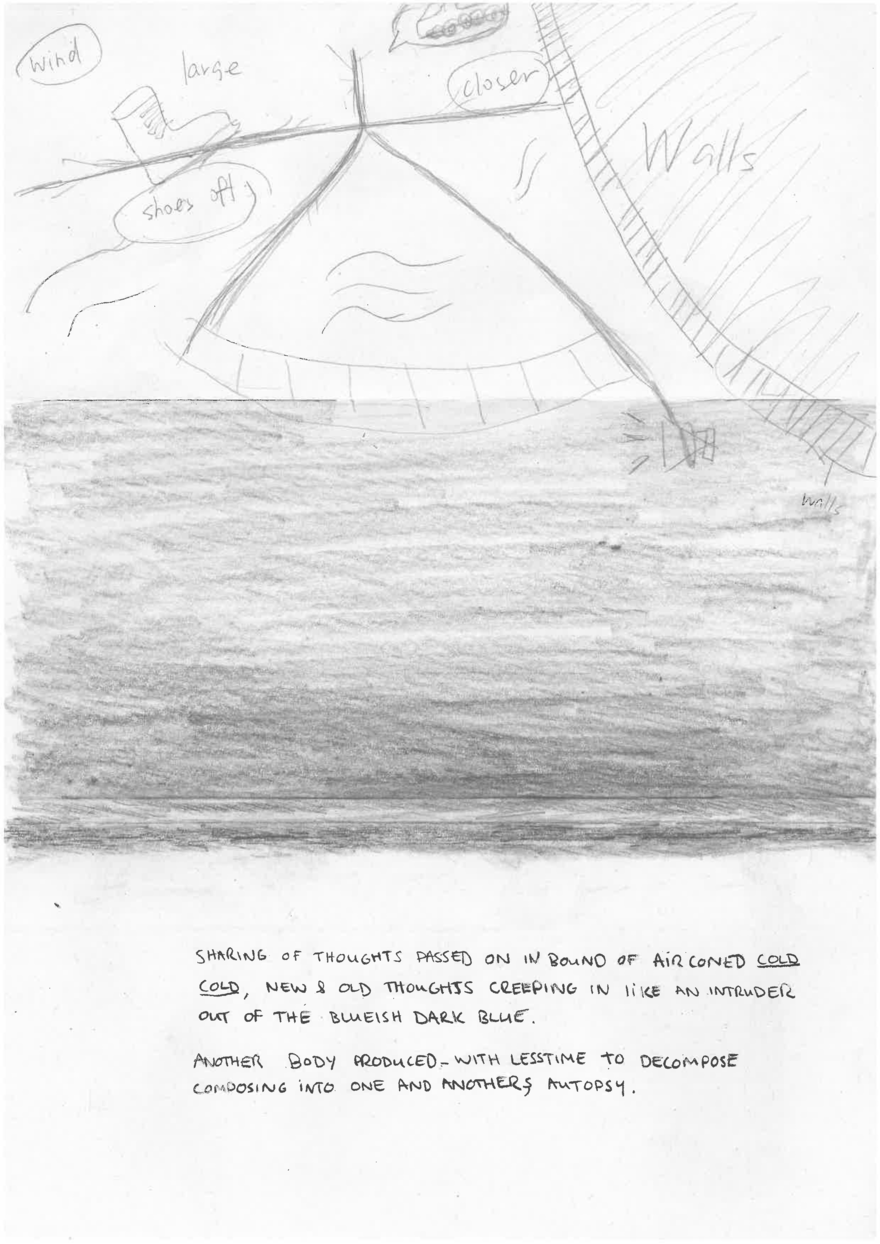 wind
large
closer
Walls
shoes off
walls
SHARING OF THOUGHTS PASSED ON IN BOUND OF AIRCONED COLD
COLD, NEW & OLD THOUGHTS CREEPING IN liKE AN INTRUDER
OUT OF THE BLUEISH DARK BLUE.
ANOTHER BODY PRODUCED - WITH LESSTIME TO DECOMPOSE
COMPOSING INTO ONE AND ANOTHERS AUTOPSY.